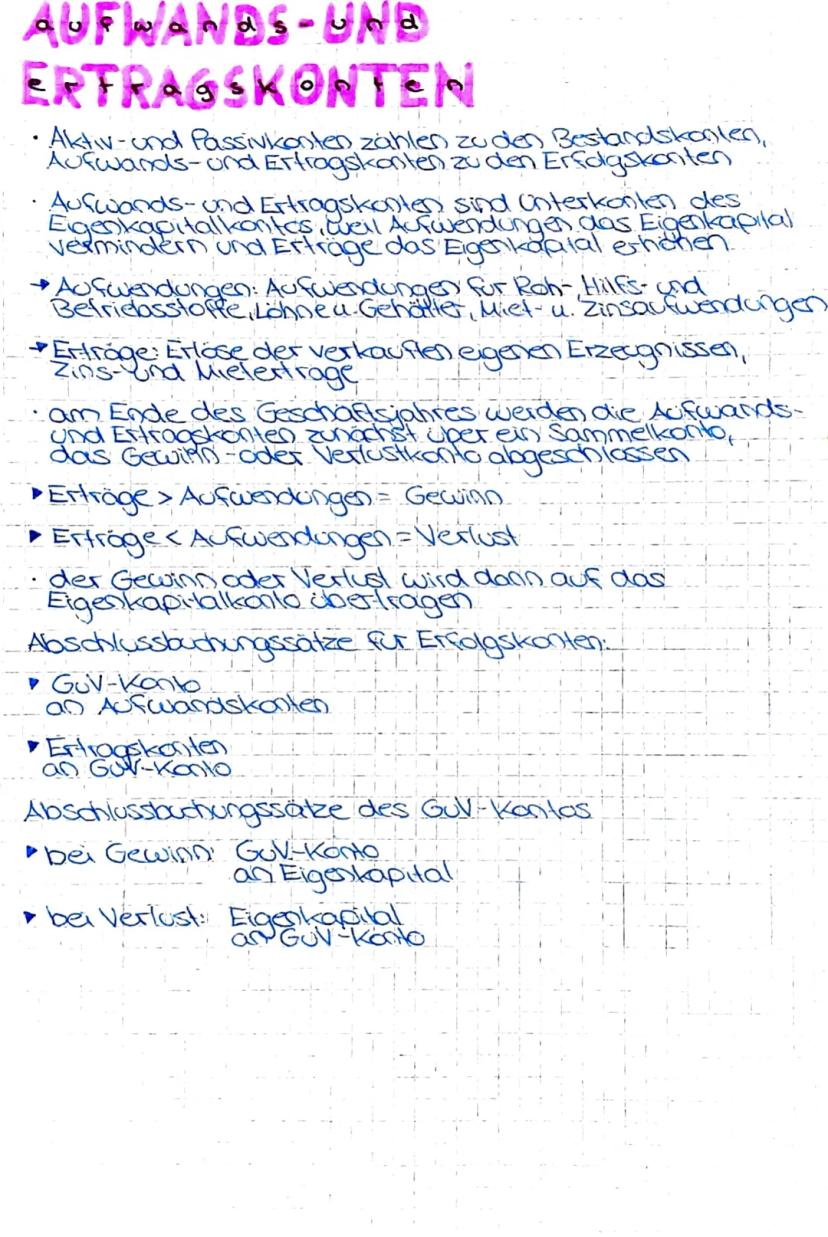 AUFWANDS-UND
aufwands-und
ERTRAGSKONTEN
ertragskonten
· Aktiv-und Passivkonten zählen zu den Bestandskonten,
Aufwands-und Ertragskonten zu den Erfolgskonten
· Aufwands-und Ertragskonten sind Unterkonten des
Eigenkapitalkontos, weil Aufwendungen das Eigenkapital
vermindern und Erträge das Eigenkapital erhöhen.
→ Aufwendungen: Aufwendungen für Roh- Hilfs- und
Betriebsstoffe, Löhne u. Gehälter, Miet- u. Zinsaufwendungen
→ Erträge: Erlöse der verkauften eigenen Erzeugnissen,
Zins-und Mieterträge
· am Ende des Geschäftsjahres werden die Aufwands-
und Ertragskonten zunächst über ein Sammelkonto,
das Gewinn-oder Verlustkonto abgeschlossen
▸ Erträge > Aufwendungen = Gewinn
▸ Erträge < Aufwendungen = Verlust
· der Gewinn oder Verlust wird dann auf das
Eigenkapitalkonto übertragen
Abschlussbuchungssätze für Erfolgskonten:
▸ GuV-Konto
an Aufwandskonten
▸ Ertragskonten
an GuV-Konto
Abschlussbuchungssätze des GuV-Kontos
▸ bei Gewinn: GuV-Konto
an Eigenkapital
▸ bei Verlust: Eigenkapital
an GuV-Konto